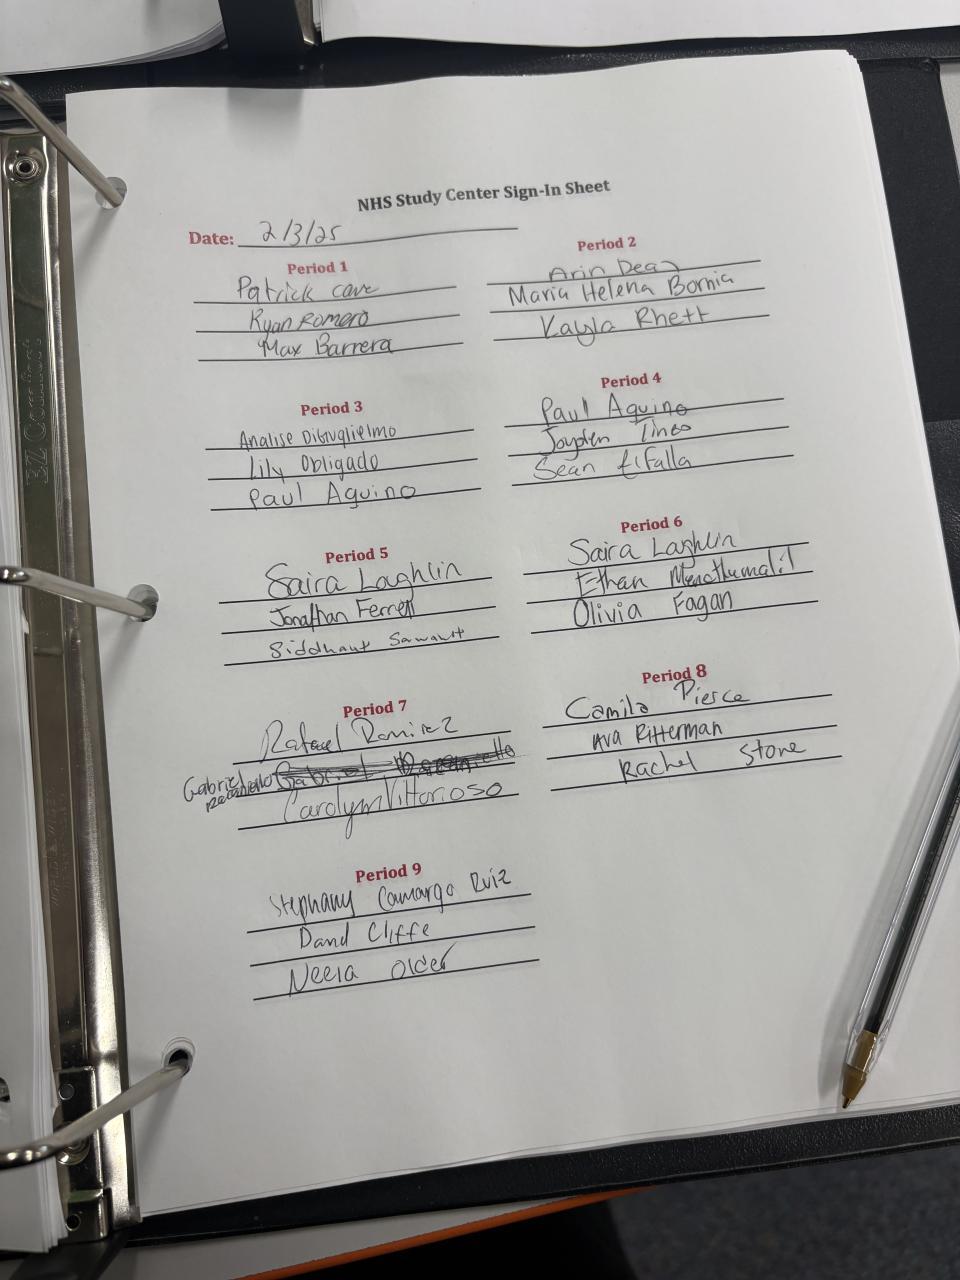 NHS Study Center Sign-In Sheet
Date: 2/3/25
Period 1
Patrick cave
Ryan Romero
Max Barrera
Period 2
Arin Deaz
Maria Helena Bornia
Kayla Rhett
Period 3
Analise DiGuglielmo
Lily Obligado
Paul Aquino
Period 4
Paul Aquino
Jayden Tineo
Sean
Period 5
Saira Laghlin
Jonathan Ferrell
Siddhant Sawant
Period 6
Saira Laghlin
Ethan
Olivia Fagan
Period 7
Rafael Ramirez
Gabriel
Carolyn Vittorioso
Period 8
Camila Pierce
Ava Ritterman
Rachel Stone
Period 9
Stephany Camargo Ruiz
David Cliffe
Neela Older